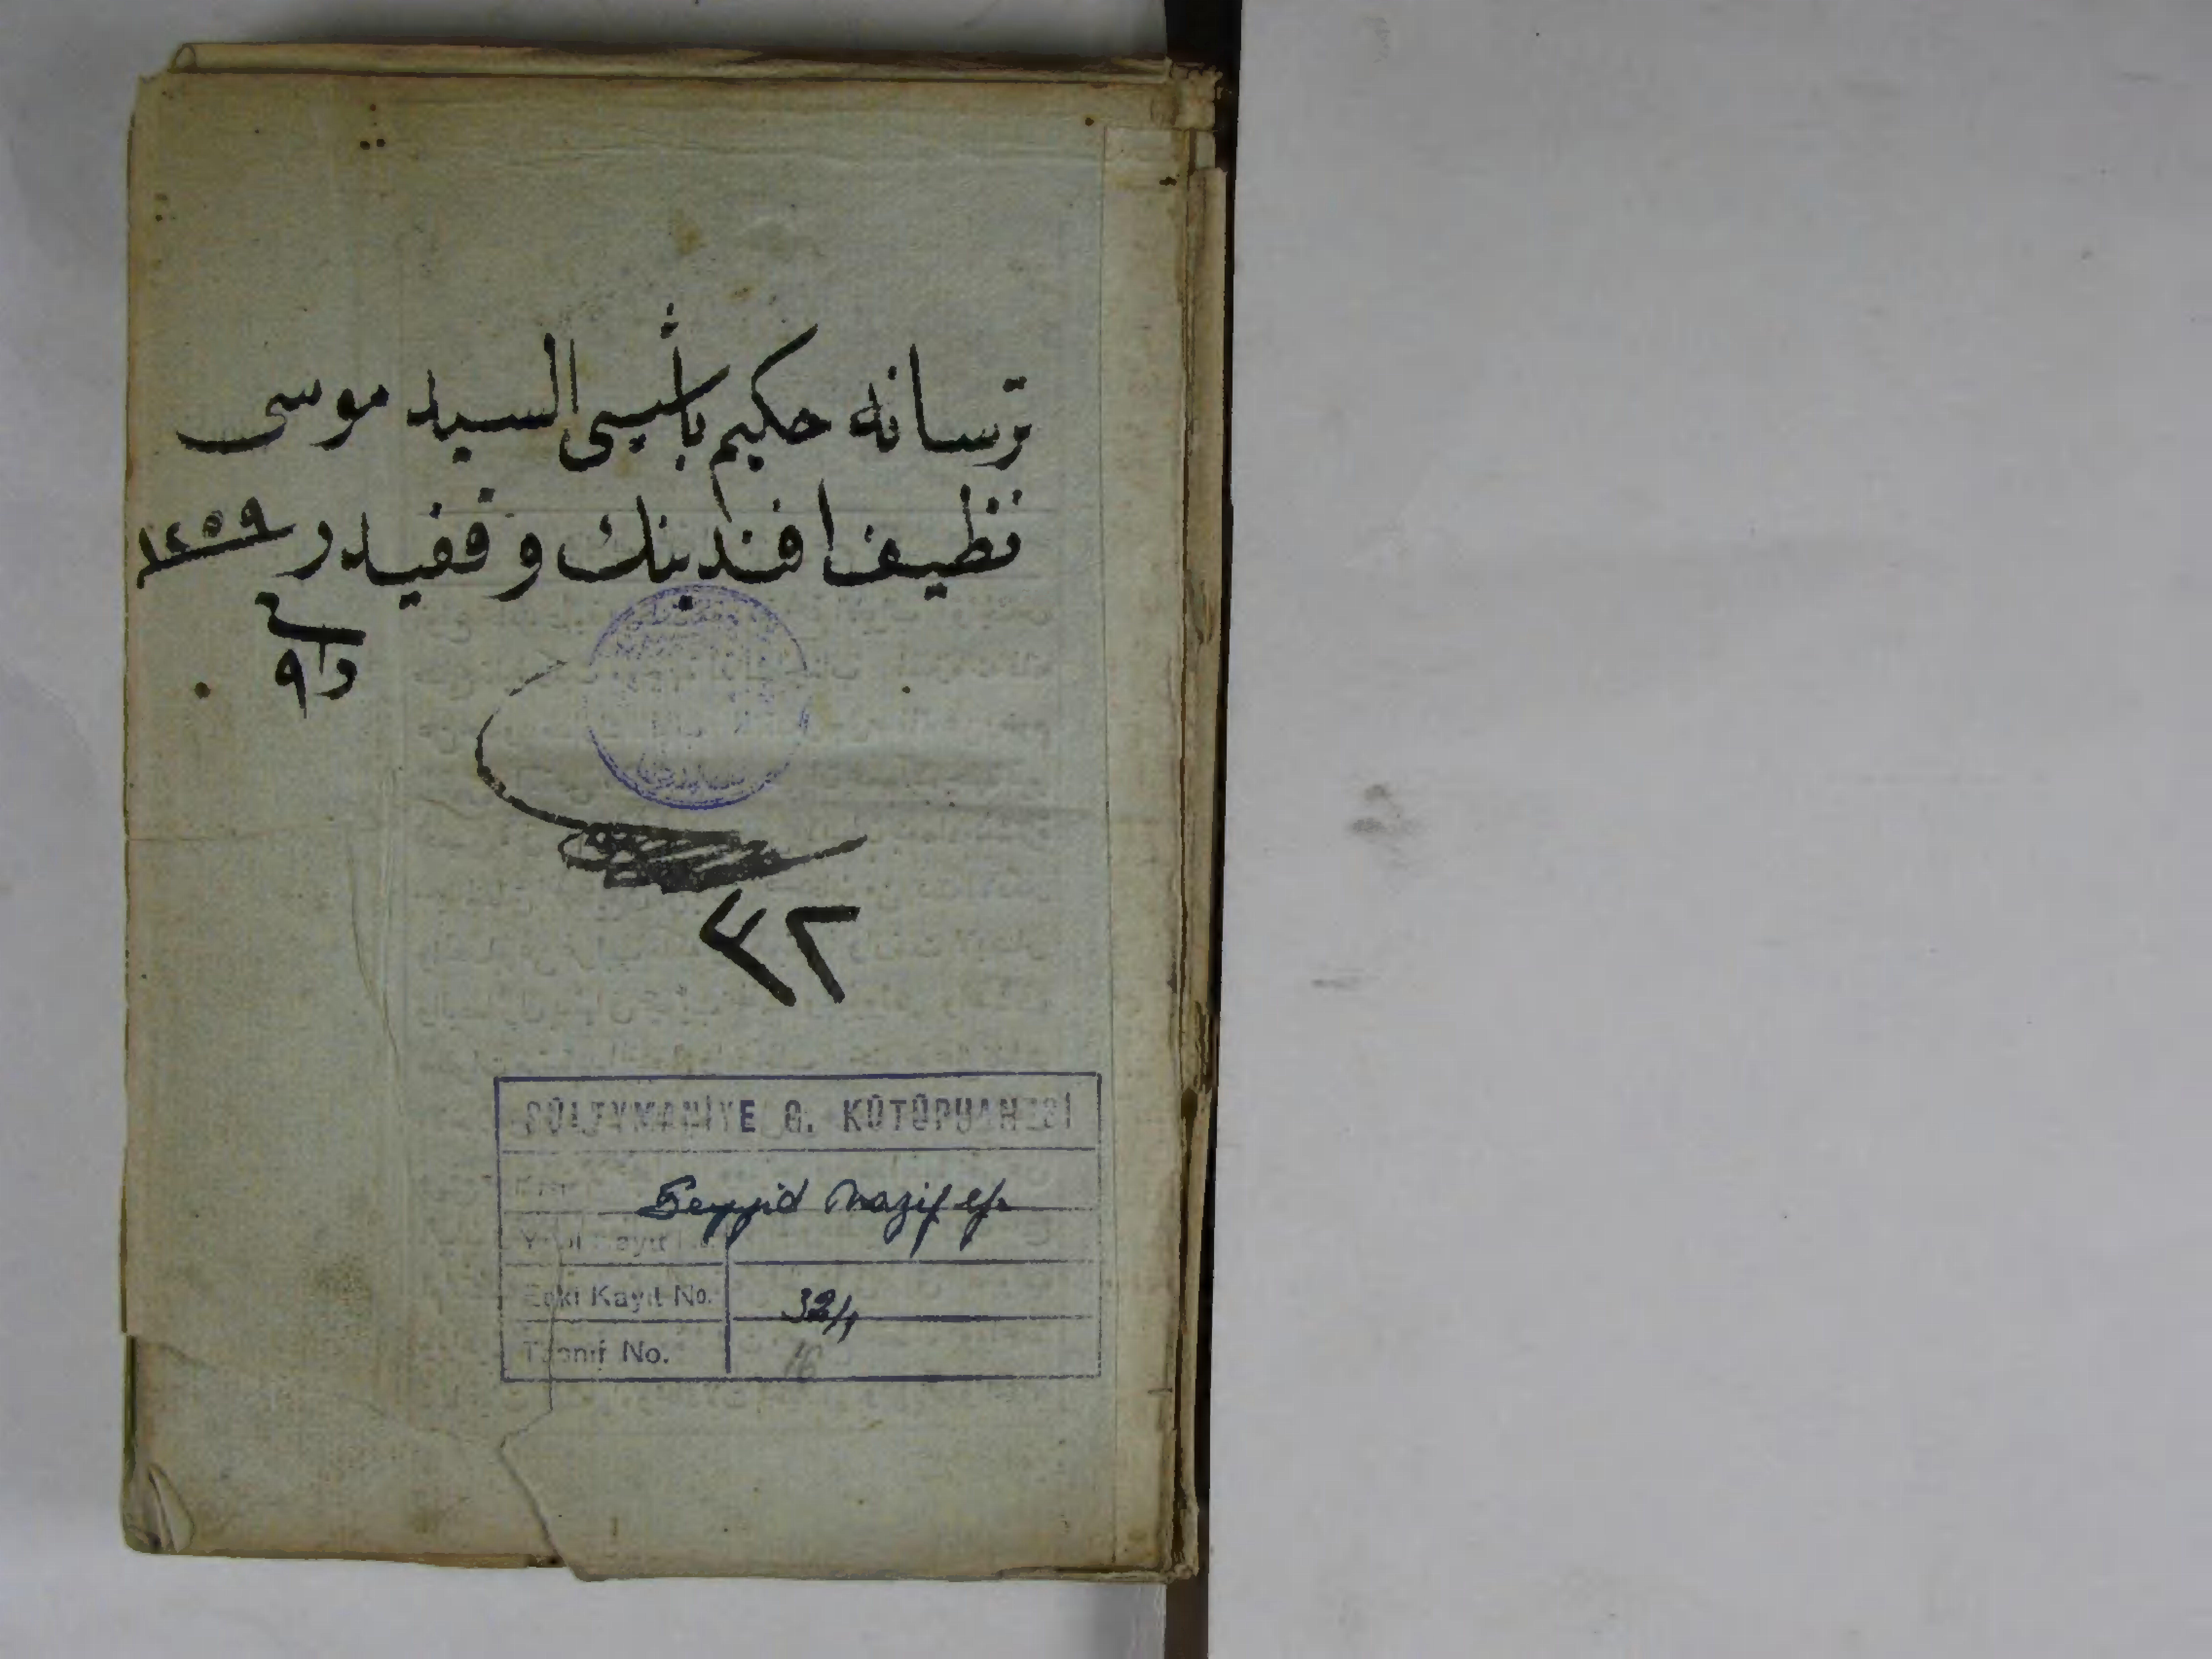 ترسانه حكيم باشيسى السيد موسى
نظيف افندينك وقفيدر ١٢٥٩
٣٢
SÜLEYMANİYE G. KÜTÜPHANESİ
Seyyid Nazif ef.
Yeni Kayıt No.
Eski Kayıt No. 32/1
Tasnif No. 16